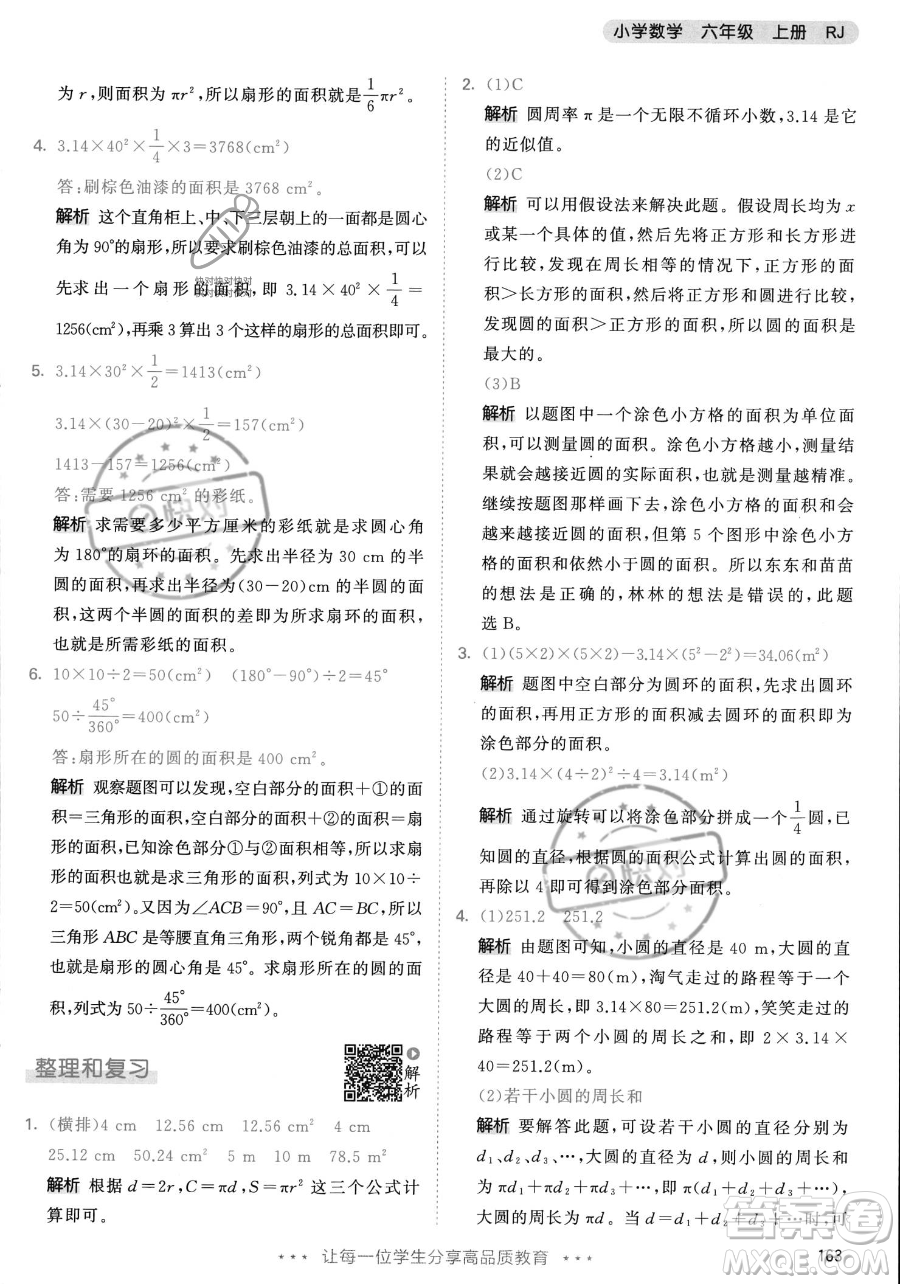 小学数学 六年级 上册 RJ
为 r，则面积为 πr²，所以扇形的面积就是 1/6 πr²。
4. 3.14×40²×1/4×3=3768(cm²)
答：刷棕色油漆的面积是 3768 cm²。
解析 这个直角柜上、中、下三层朝上的一面都是圆心
角为 90°的扇形，所以要求刷棕色油漆的总面积，可以
先求出一个扇形的面积，即 3.14×40²×1/4=
1256(cm²)，再乘 3 算出 3 个这样的扇形的总面积即可。
5. 3.14×30²×1/2=1413(cm²)
3.14×(30-20)²×1/2=157(cm²)
1413-157=1256(cm²)
答：需要 1256 cm² 的彩纸。
解析 求需要多少平方厘米的彩纸就是求圆心角
为 180°的扇环的面积。先求出半径为 30 cm 的半
圆的面积，再求出半径为(30-20)cm 的半圆的面
积，这两个半圆的面积的差即为所求扇环的面积，
也就是所需彩纸的面积。
6. 10×10÷2=50(cm²) (180°-90°)÷2=45°
50÷45°/360°=400(cm²)
答：扇形所在的圆的面积是 400 cm²。
解析 观察题图可以发现，空白部分的面积+①的面
积=三角形的面积，空白部分的面积+②的面积=扇形
的面积，已知涂色部分①与②的面积相等，所以三角
形的面积=扇形的面积。根据三角形的底和高都是
10 cm，可以求出三角形的面积，列式为 10×10÷
2=50(cm²)。又因为∠ACB=90°，AC=BC，所以
三角形 ABC 是等腰直角三角形，两个锐角都是 45°，
即扇形的圆心角是 45°。求扇形所在的圆的面
积，列式为 50÷45°/360°=400(cm²)。
整理和复习
解析
1. (横排)4 cm 12.56 cm 12.56 cm² 4 cm
25.12 cm 50.24 cm² 5 m 10 m 78.5 m²
解析 根据 d=2r，C=πd，S=πr² 这三个公式计
算即可。
2. (1)C
解析 圆周率 π 是一个无限不循环小数，3.14 是它
的近似值。
(2)C
解析 可以用假设法来解决此题。假设周长均为 x
或某一个具体的值，然后先将正方形和长方形进
行比较，发现在周长相等的情况下，正方形的面
积>长方形的面积，然后将正方形和圆进行比较，
发现圆的面积>正方形的面积，所以圆的面积是
最大的。
(3)B
解析 以题图中一个涂色小方格的面积为单位面
积，可以测量圆的面积。涂色小方格越小，测量的
结果就会越接近圆的实际面积，也就是测量越精准。
继续按题图那样画下去，涂色小方格的面积和会
越来越接近圆的面积，但第 5 个图形中涂色小方
格的面积和依然小于圆的面积。所以东东和苗苗
的想法是正确的，林林的想法是错误的，此题
选 B。
3. (1)(5×2)×(5×2)-3.14×(5²-2²)=34.06(m²)
解析 题图中空白部分为圆环的面积，先求出圆环的
面积，再用正方形的面积减去圆环的面积即为
涂色部分的面积。
(2)3.14×(4÷2)²÷4=3.14(m²)
解析 通过旋转可以将涂色部分拼成一个 1/4 圆，已
知圆的直径，根据圆的面积公式计算出圆的面积，
再除以 4 即可得到涂色部分面积。
4. (1)251.2 251.2
解析 由题图可知，小圆的直径是 40 m，大圆的直径
是 40+40=80(m)，淘气走过的路程等于一个
大圆的周长，即 3.14×80=251.2(m)，笑笑走过的
路程等于两个小圆的周长之和，即 2×3.14×
40=251.2(m)。
(2)若干小圆的周长和
解析 要解答此题，可设若干小圆的直径分别为
d₁、d₂、…，大圆的直径为 d，则大圆的周长为 πd，小
圆的周长和为 πd₁+πd₂+…，即 π(d₁+d₂+…)，
★★★ 让每一位学生分享高品质教育 ★★★
163
快对
快对
MXQE.COM